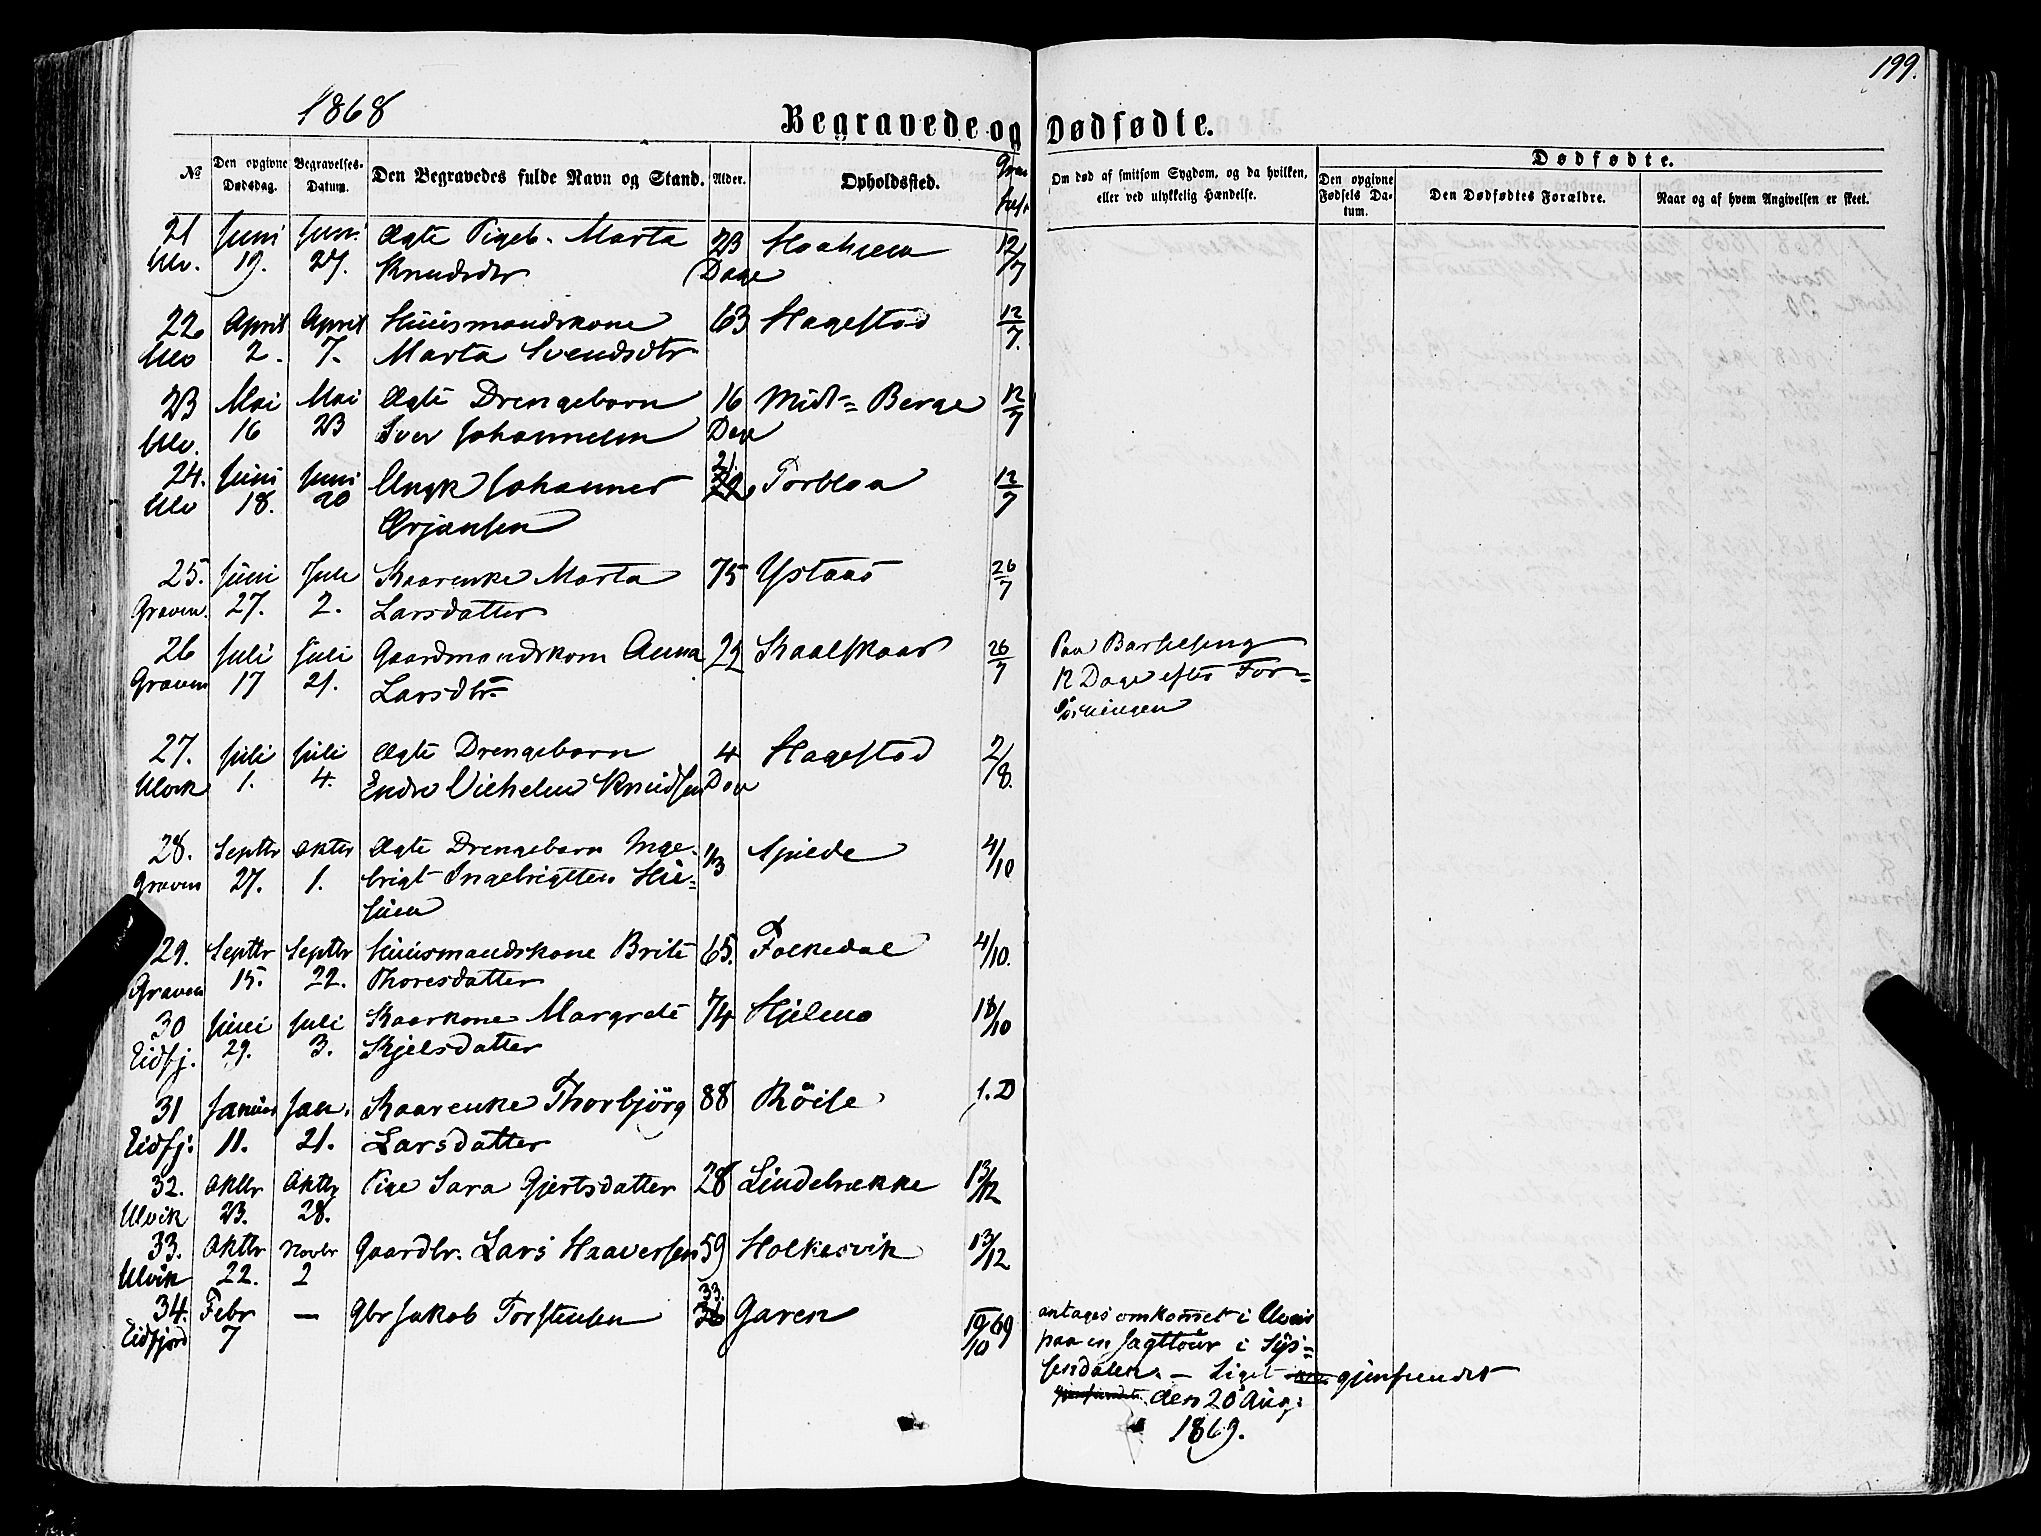 199.
1868
Begravede og Dødfødte.
№ Den opgivne Dødsdag. Begravelses-Datum. Den Begravedes fulde Navn og Stand. Alder. Opholdssted. Om død af smitsom Sygdom, og da hvilken, eller ved ulykkelig Hændelse. Den opgivne Fødsels Datum. Den Dødfødtes Forældre. Naar og af hvem Angivelsen er skeet.
Dødfødte.
21 Juni Juni Ægte Pigeb. Marta 23 Haaheim 12/7
Ulv. 19. 27. Knudsdtr Dage
22 April April Huusmandskone 63 Hagestad 12/7.
Ulv 2. 7. Marta Svendsdtr
23 Mai Mai Ægte Drengebarn 16 Midt= Berge 12/7
Ulv. 16 23 Iver Johannesen Dage
24. Juni Juni Ungk Johannes 21. Torbloa 12/7
Ulv 18. 20 Ørjansen
25. Juni Juli Kaarenke Marta 75 Ystaas 26/7
Graven. 27. 2. Larsdatter
26 Juli Juli Gaardmandskone Anna 22 Kaalskaar 26/7 Paa Barselseng
Graven 17 21. Larsdtr 12 Dage efter For=
løsningen
27. Juli Juli Ægte Drengebarn 4 Hagestad 2/8.
Ulvik 1. 4. Endre Vilhelm Knudsen Dage
28. Septbr Oktbr Ægte Drengebarn Inge= 1/3 Spilde 4/10
Graven 27. 1. brigt Ingebrigtsen
29. Septbr Septbr Huusmandskone Brite 65. Folkedal 4/10.
Graven 15. 22. Thoresdatter
30 Juni Juli Kaarkone Margrete 74 Hjelmo 18/10
Eidfj. 29. 3. Kjelsdatter
31 Januar Jan. Kaarenke Thorbjörg 88 Röise 1. D
Eidfj: 11. 21. Larsdatter
32. Oktbr Oktbr Pige Sara Gjertsdatter 28 Lindebrekke 13/12
Ulvik 23. 28.
33. Oktbr Novbr Gaardbr. Lars Haaversen 59 Holkesvik 13/12
Ulvik 22. 2
34. Febr — Gbr Jakob Torstensen 33. Garen 10/10 69 antages omkommet i Uveir
Eidfjord 7 paa en Jagttour i Sys=
sendalen. — Liget gjenfundet
den 20 Aug:
1869.